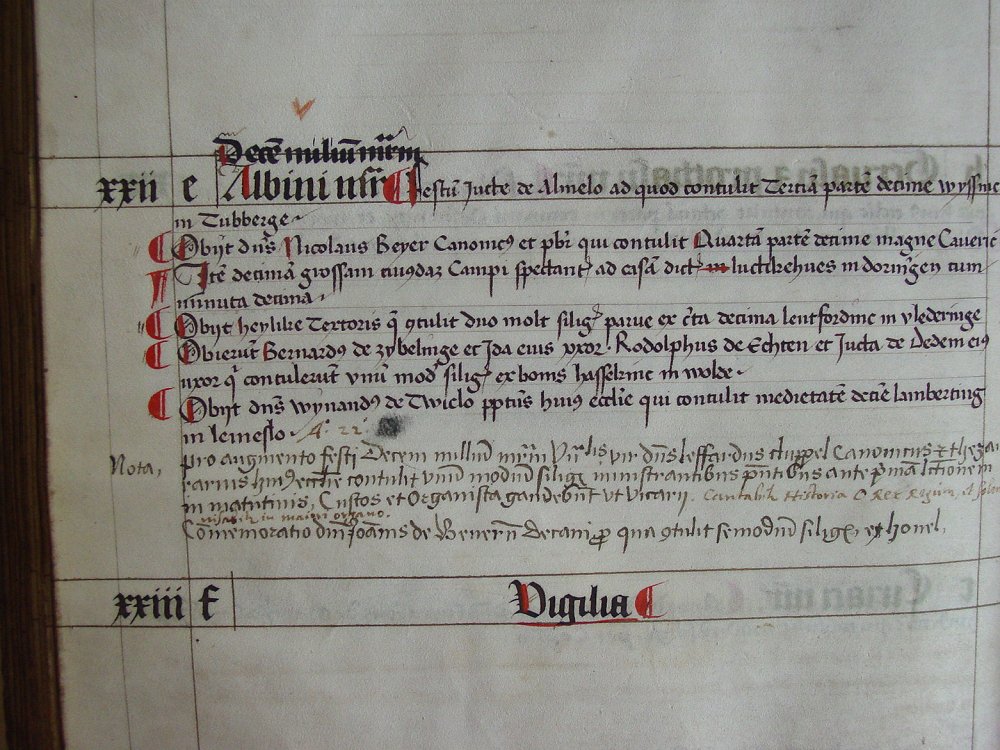 Decē miliū mr̄m
xxii e Albini mr̄is festū Jutte de Almelo ad quod contulit Terciā partē decime wyssinc
in Tubberge
Obijt dn̄s Nicolaus Beyer Canonicꝰ et pb̄r qui contulit Quartā partē decime magne
Itē decimā grossam cuiusdaz Campi spectant̄ ad casā dict̄ in lutkehues in dorningen cum
minuta decima
Obijt heylike Textoris q̄ ꝯtulit duo molt siliḡ parue ex c̄ta decima lentfordinc in vlederinge
Obierūt Bernardꝰ de zybelinge et Ida eius vxor. Rodolphus de Echten et Jutta de Dedem eiꝰ
uxor q̄ contulerūt vnū mod̄ siliḡ ex bonis hasselrinc in wolde
Obijt dn̄s wynandꝰ de Twiclo pp̄itus huiꝰ eccl̄ie qui contulit medietatē decīe lamberting
in lemeslo A. 22.
Nota, pro augmento festi Decem milliū mr̄m dn̄s leffardus Canonicus et thezau
rarius huiꝰ eccl̄ie contulit vnū modiū siliḡ ministrantibus p̄ntibus ante p̄mā lectionem
in matutinis, Custos et Organista gaudebūt vt vicarij. Cantabit Historia O Rex Regum, et
in maiori organo.
Cōmemoratio dn̄i Joānis de Decani qua ꝯtulit semodiū siliḡ, ex honel.
xxiii f Vigilia